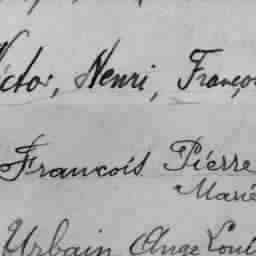 Victor, Henri, Franço
Francois Pierre
Marie
Urbain Ange Loui